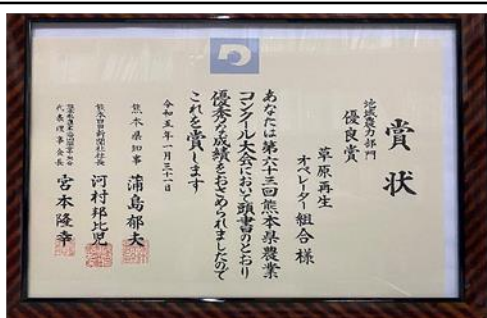 賞状
地域農力部門
優良賞
草原再生
オペレーター組合様
あなたは第六十三回熊本県農業
コンクール大会において頭書のとおり
優秀な成績をおさめられましたので
これを賞します
令和五年一月三十一日
熊本県知事 蒲島郁夫
熊本日日新聞社社長 河村邦比児
代表理事会長 宮本隆幸